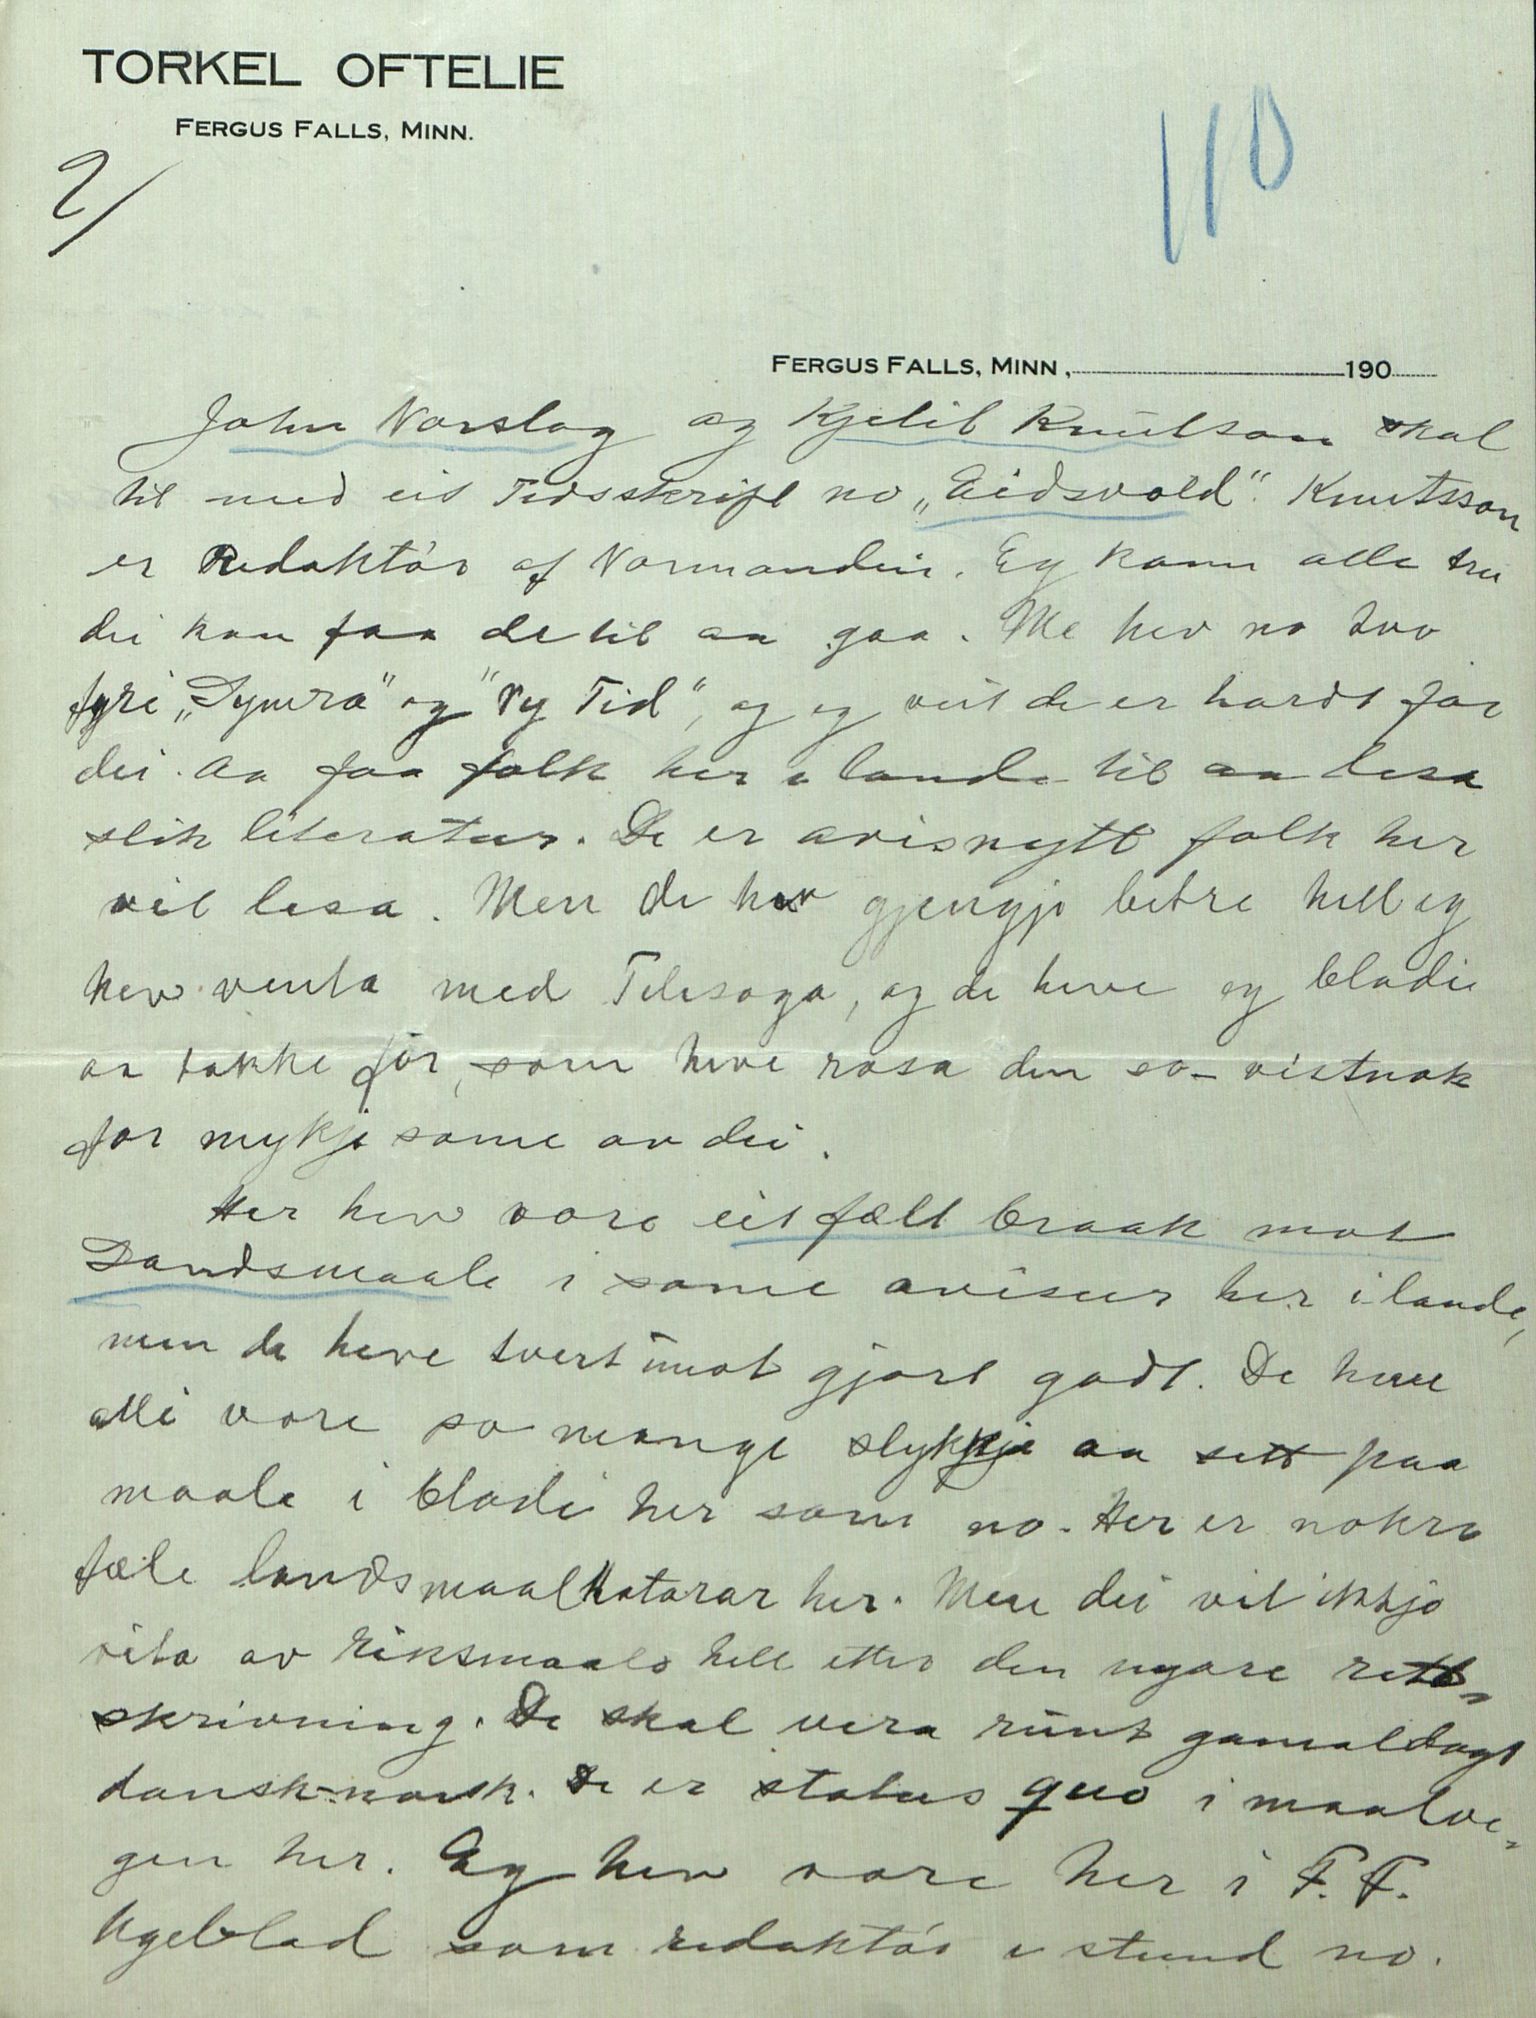 TORKEL OFTELIE
FERGUS FALLS, MINN.
2/
110
FERGUS FALLS, MINN, 190
John Norslog og Kjetil Knutson skal
til med eit Tidsskrift no „Eidsvold“. Knutsson
er Redaktör af Normanden. Eg kann alle tru
dei kan faa de til aa gaa. Me hev no two
fyri „Symra“ og "Ny Tid“, og eg veit de er hardt for
dei aa faa folk her i lande til aa lesa
slik literatur. De er avisnytt folk her
vil lesa. Men de hev gjengje betre hell eg
hev venta med Telesoga, og de heve eg bladi
aa takke för, som heve rosa den so vistnok
for mykje some av dei.
Her hev vore eit fælt braak mot
Landsmaale i some avisur her i lande,
men de heve tvert imot gjort godt. De heve
alli vore so mange stykkje aa sett paa
maale i bladi her som no. Her er nokro
fæle landsmaalhatarar her. Men dei vil ikkje
vita av riksmaale hell etter den nyare rett-
skrivning. De skal vera riint gamaldagt
dansk-norsk. De er status quo i maalve-
gen her. Eg hev vore her i F. F.
Ugeblad som redaktör e stund no.